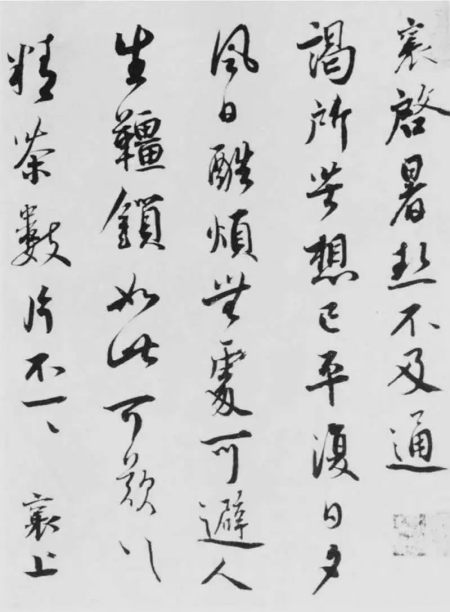 襄啓暑熱不及通
謁所苦想已平復日夕
風日酷煩無處可避人
生韁鎖如此可歎〻
精茶數片不一〻 襄上